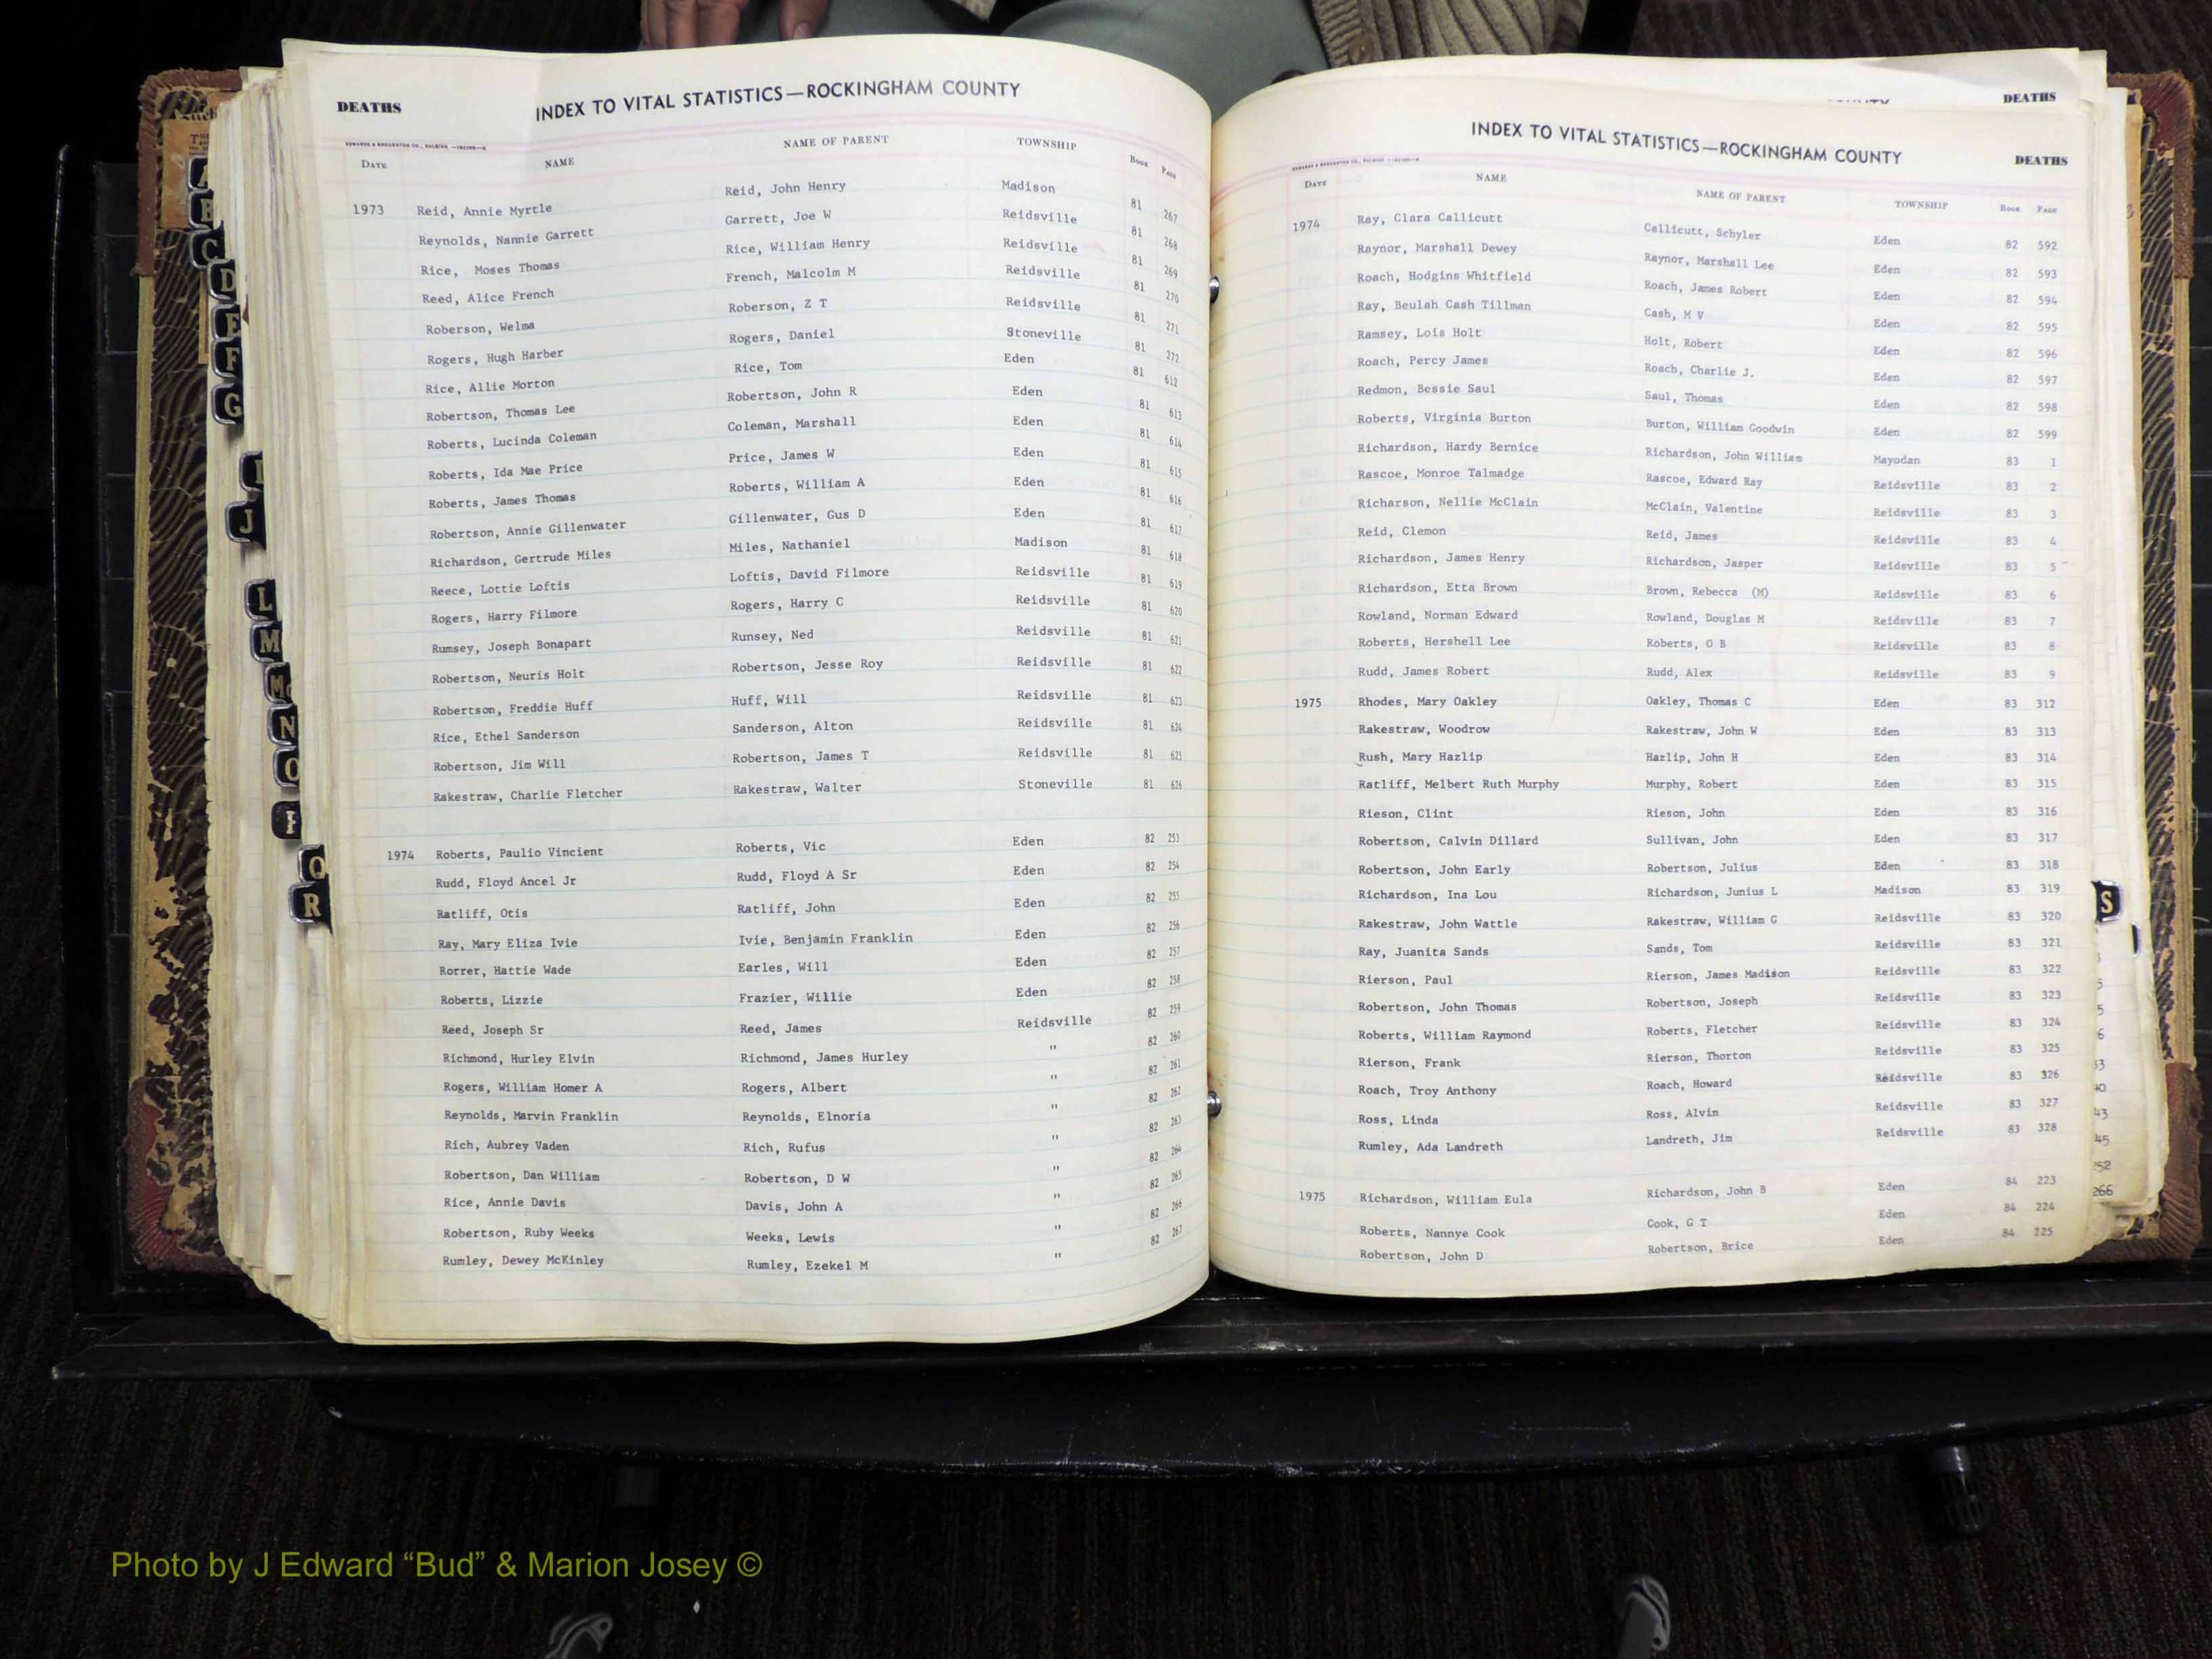 DEATHS INDEX TO VITAL STATISTICS—ROCKINGHAM COUNTY
EDWARDS & BROUGHTON CO., RALEIGH
DATE NAME NAME OF PARENT TOWNSHIP BOOK PAGE
1973 Reid, Annie Myrtle Reid, John Henry Madison 81 267
Reynolds, Nannie Garrett Garrett, Joe W Reidsville 81 268
Rice, Moses Thomas Rice, William Henry Reidsville 81 269
Reed, Alice French French, Malcolm M Reidsville 81 270
Roberson, Welma Roberson, Z T Reidsville 81 271
Rogers, Hugh Harber Rogers, Daniel Stoneville 81 272
Rice, Allie Morton Rice, Tom Eden 81 612
Robertson, Thomas Lee Robertson, John R Eden 81 613
Roberts, Lucinda Coleman Coleman, Marshall Eden 81 614
Roberts, Ida Mae Price Price, James W Eden 81 615
Roberts, James Thomas Roberts, William A Eden 81 616
Robertson, Annie Gillenwater Gillenwater, Gus D Eden 81 617
Richardson, Gertrude Miles Miles, Nathaniel Madison 81 618
Reece, Lottie Loftis Loftis, David Filmore Reidsville 81 619
Rogers, Harry Filmore Rogers, Harry C Reidsville 81 620
Rumsey, Joseph Bonapart Runsey, Ned Reidsville 81 621
Robertson, Neuris Holt Robertson, Jesse Roy Reidsville 81 622
Robertson, Freddie Huff Huff, Will Reidsville 81 623
Rice, Ethel Sanderson Sanderson, Alton Reidsville 81 624
Robertson, Jim Will Robertson, James T Reidsville 81 625
Rakestraw, Charlie Fletcher Rakestraw, Walter Stoneville 81 626
1974 Roberts, Paulio Vincient Roberts, Vic Eden 82 253
Rudd, Floyd Ancel Jr Rudd, Floyd A Sr Eden 82 254
Ratliff, Otis Ratliff, John Eden 82 255
Ray, Mary Eliza Ivie Ivie, Benjamin Franklin Eden 82 256
Rorrer, Hattie Wade Earles, Will Eden 82 257
Roberts, Lizzie Frazier, Willie Eden 82 258
Reed, Joseph Sr Reed, James Reidsville 82 259
Richmond, Hurley Elvin Richmond, James Hurley " 82 260
Rogers, William Homer A Rogers, Albert " 82 261
Reynolds, Marvin Franklin Reynolds, Elnoria " 82 262
Rich, Aubrey Vaden Rich, Rufus " 82 263
Robertson, Dan William Robertson, D W " 82 264
Rice, Annie Davis Davis, John A " 82 265
Robertson, Ruby Weeks Weeks, Lewis " 82 266
Rumley, Dewey McKinley Rumley, Ezekel M " 82 267
A
B
C
D
E
F
G
I
J
L
M
Mc
N
O
P
Q
R
DEATHS
INDEX TO VITAL STATISTICS—ROCKINGHAM COUNTY DEATHS
EDWARDS & BROUGHTON CO., RALEIGH
DATE NAME NAME OF PARENT TOWNSHIP BOOK PAGE
1974 Ray, Clara Callicutt Callicutt, Schyler Eden 82 592
Raynor, Marshall Dewey Raynor, Marshall Lee Eden 82 593
Roach, Hodgins Whitfield Roach, James Robert Eden 82 594
Ray, Beulah Cash Tillman Cash, M V Eden 82 595
Ramsey, Lois Holt Holt, Robert Eden 82 596
Roach, Percy James Roach, Charlie J. Eden 82 597
Redmon, Bessie Saul Saul, Thomas Eden 82 598
Roberts, Virginia Burton Burton, William Goodwin Eden 82 599
Richardson, Hardy Bernice Richardson, John William Mayodan 83 1
Rascoe, Monroe Talmadge Rascoe, Edward Ray Reidsville 83 2
Richarson, Nellie McClain McClain, Valentine Reidsville 83 3
Reid, Clemon Reid, James Reidsville 83 4
Richardson, James Henry Richardson, Jasper Reidsville 83 5
Richardson, Etta Brown Brown, Rebecca (M) Reidsville 83 6
Rowland, Norman Edward Rowland, Douglas M Reidsville 83 7
Roberts, Hershell Lee Roberts, O B Reidsville 83 8
Rudd, James Robert Rudd, Alex Reidsville 83 9
1975 Rhodes, Mary Oakley Oakley, Thomas C Eden 83 312
Rakestraw, Woodrow Rakestraw, John W Eden 83 313
Rush, Mary Hazlip Hazlip, John H Eden 83 314
Ratliff, Melbert Ruth Murphy Murphy, Robert Eden 83 315
Rieson, Clint Rieson, John Eden 83 316
Robertson, Calvin Dillard Sullivan, John Eden 83 317
Robertson, John Early Robertson, Julius Eden 83 318
Richardson, Ina Lou Richardson, Junius L Madison 83 319
Rakestraw, John Wattle Rakestraw, William G Reidsville 83 320
Ray, Juanita Sands Sands, Tom Reidsville 83 321
Rierson, Paul Rierson, James Madison Reidsville 83 322
Robertson, John Thomas Robertson, Joseph Reidsville 83 323
Roberts, William Raymond Roberts, Fletcher Reidsville 83 324
Rierson, Frank Rierson, Thorton Reidsville 83 325
Roach, Troy Anthony Roach, Howard Reidsville 83 326
Ross, Linda Ross, Alvin Reidsville 83 327
Rumley, Ada Landreth Landreth, Jim Reidsville 83 328
1975 Richardson, William Eula Richardson, John B Eden 84 223
Roberts, Nannye Cook Cook, G T Eden 84 224
Robertson, John D Robertson, Brice Eden 84 225
S
266
Photo by J Edward “Bud” & Marion Josey ©